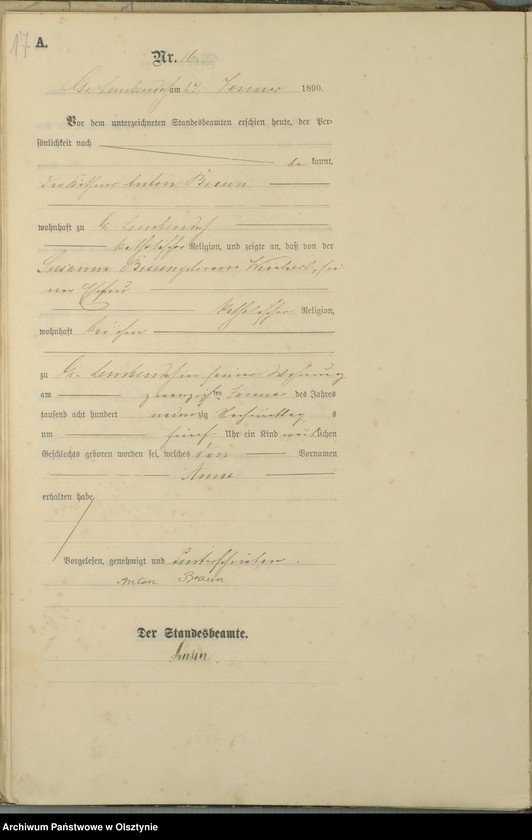 17 A.
Nr. 16
am 27. Januar 1890.
Vor dem unterzeichneten Standesbeamten erschien heute, der Per-
sönlichkeit nach
kannt,
Anton Braun
wohnhaft zu Gr.
katholischer Religion, und zeigte an, daß von der
Susanna Braun geborene
katholischer Religion,
wohnhaft bei ihm
zu Gr. in seiner Wohnung
am zwanzigsten Januar des Jahres
tausend acht hundert neunzig Nachmittag s
um fünf Uhr ein Kind weiblichen
Geschlechts geboren worden sei, welches den Vornamen
Anna
erhalten habe
Vorgelesen, genehmigt und unterschrieben.
Anton Braun
Der Standesbeamte.
Archiwum Państwowe w Olsztynie